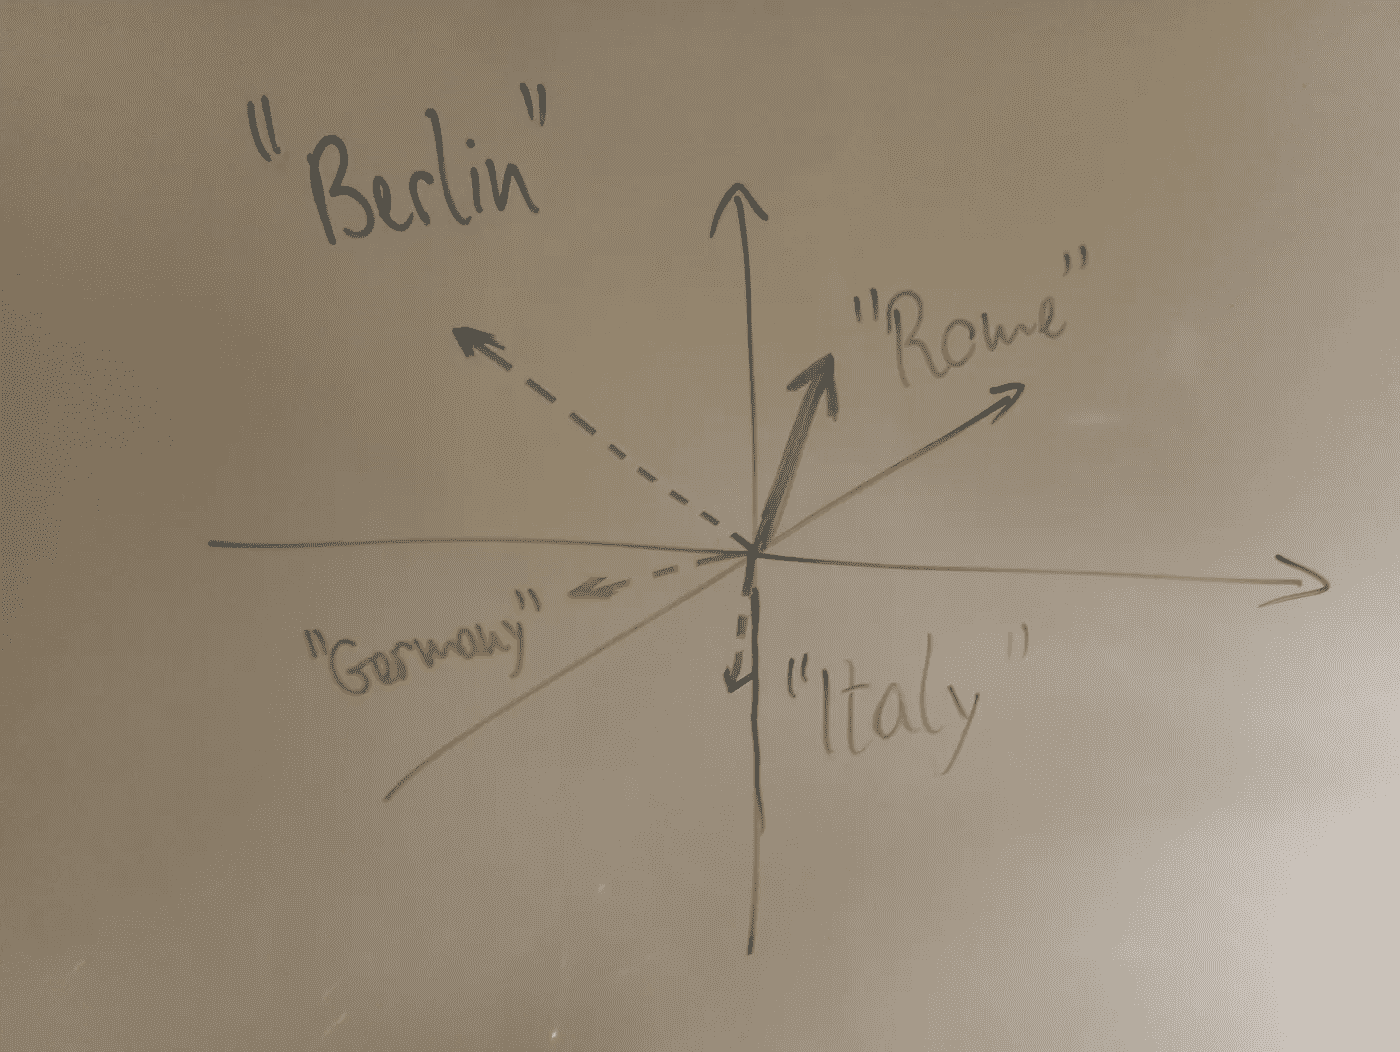 "Berlin"
"Rome"
"Germany"
"Italy"